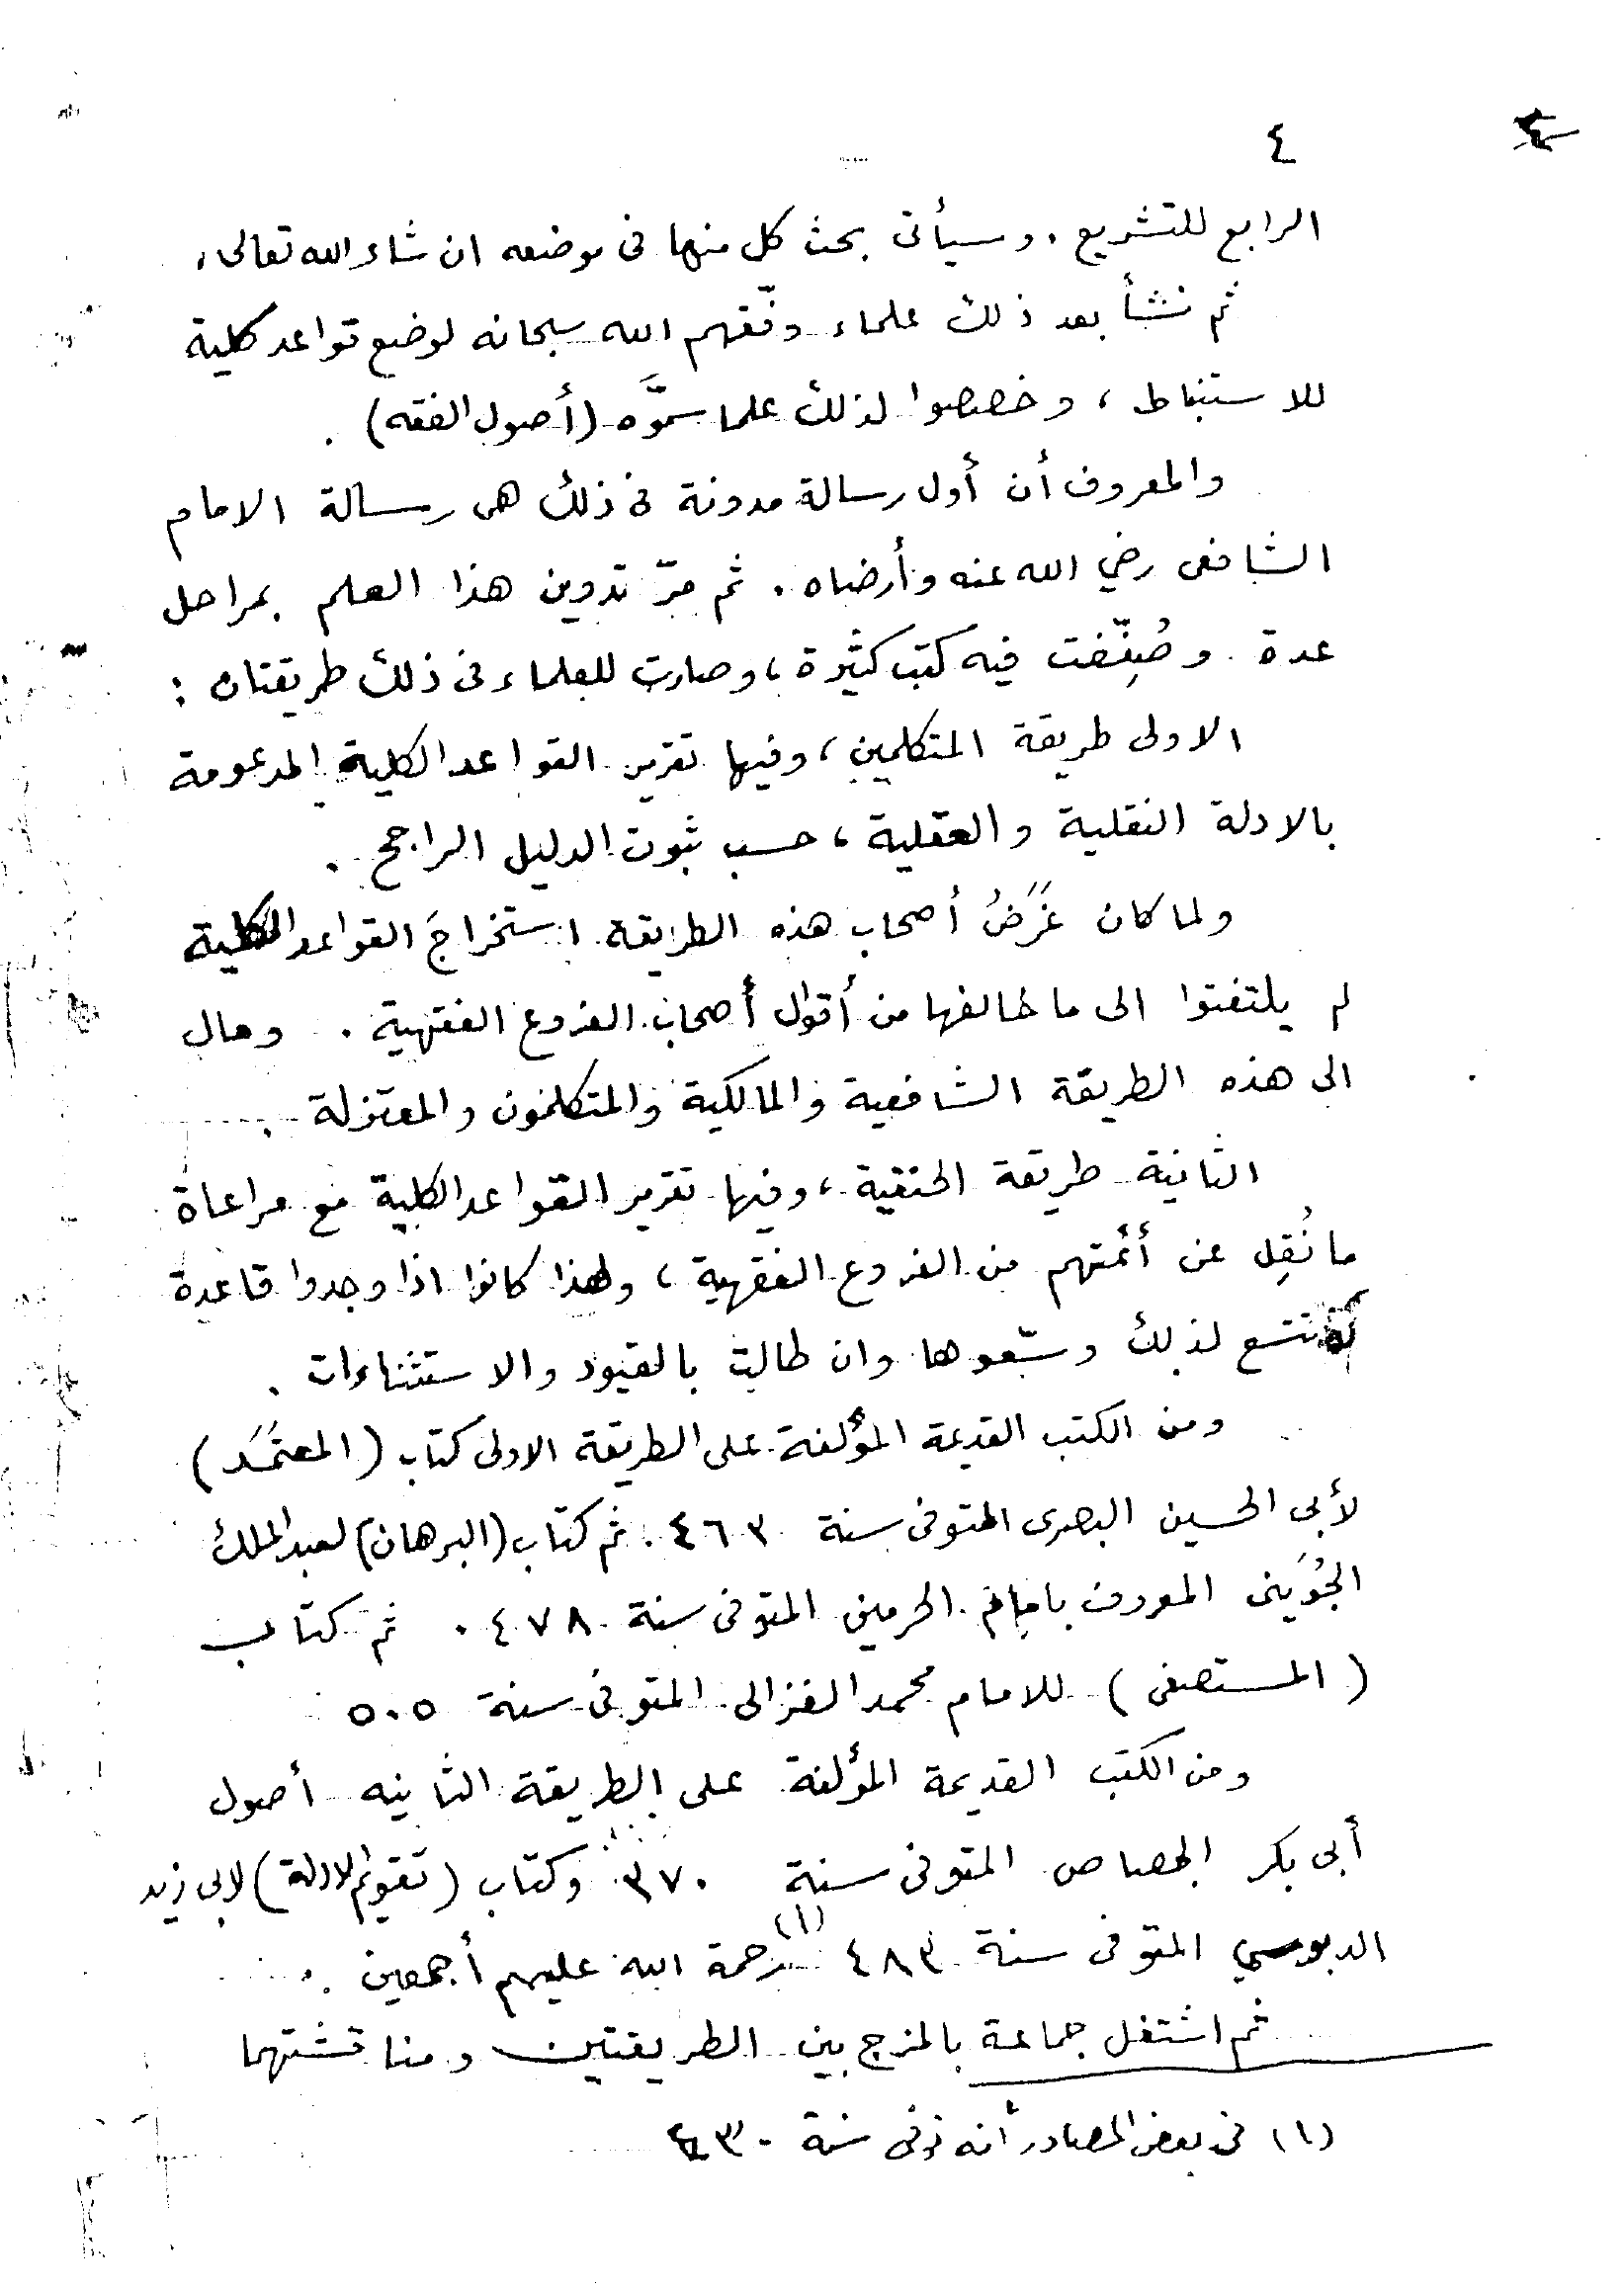 ٤
الرابع للتشريع . وسيأتى بحث كل منها فى موضعه ان شاء الله تعالى .
ثم نشأ بعد ذلك علماء وفّقهم الله سبحانه لوضع قواعد كلية
للاستنباط ، وخصصوا لذلك علما سمَّوَه (أصول الفقه) .
والمعروف أن أول رسالة مدونة فى ذلك هى رسالة الامام
الشافعى رضي الله عنه وأرضاه . ثم مرّ تدوين هذا العلم بمراحل
عدة . وصُنِّفت فيه كتب كثيرة ، وصارت للعلماء فى ذلك طريقتان :
الاولى طريقة المتكلمين ، وفيها تقرير القواعد الكلية المدعومة
بالادلة النقلية والعقلية ، حسب ثبوت الدليل الراجح .
ولما كان غَرَضُ أصحاب هذه الطريقة استخراجَ القواعد الكلية
لم يلتفتوا الى ما خالفها من أقوال أصحاب الفروع الفقهية . ومال
الى هذه الطريقة الشافعية والمالكية والمتكلمون والمعتزلة .
الثانية طريقة الحنفية ، وفيها تقرير القواعد الكلية مع مراعاة
ما نُقِل عن أئمتهم من الفروع الفقهية ، ولهذا كانوا اذا وجدوا قاعدة
لا تتسع لذلك وسّعوها وان طالت بالقيود والاستثناءات .
ومن الكتب القديمة المؤلفة على الطريقة الاولى كتاب (المعتمَد)
لأبى الحسين البصرى المتوفى سنة ٤٦٣ . ثم كتاب (البرهان) لعبد الملك
الجُوَينى المعروف بامام الحرمين المتوفى سنة ٤٧٨ . ثم كتاب
(المستصفى) للامام محمد الغزالى المتوفى سنة ٥٠٥
ومن الكتب القديمة المؤلفة على الطريقة الثانيه أصول
أبى بكر الجصاص المتوفى سنة ٣٧٠ وكتاب (تقويم الادلة) لابى زيد
الدبوسي المتوفى سنة ٤٨٣ (١) رحمة الله عليهم أجمعين .
ثم اشتغل جماعة بالمزج بين الطريقتين ومناقشتهما
(١) فى بعض المصادر أنه توفى سنة ٤٣٠